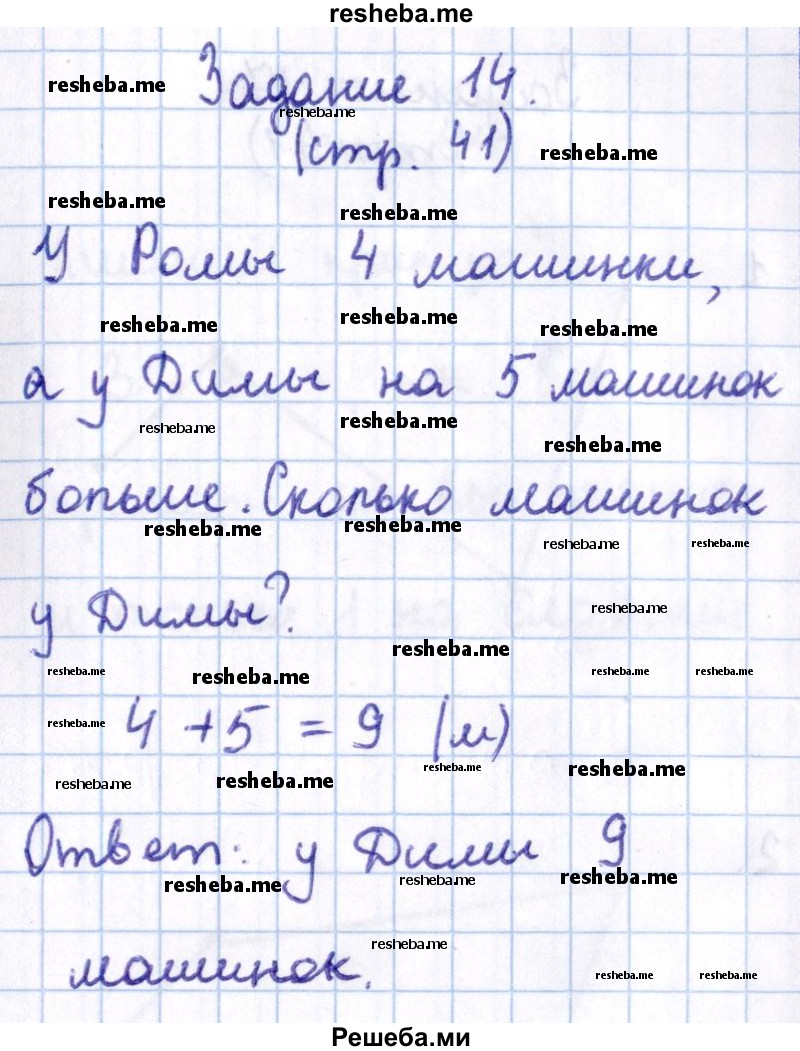 resheba.me
resheba.me Задание 14.
resheba.me
(стр. 41) resheba.me
resheba.me resheba.me
У Ромы 4 машинки,
resheba.me resheba.me resheba.me
а у Димы на 5 машинок
resheba.me resheba.me resheba.me
больше. Сколько машинок
resheba.me resheba.me resheba.me resheba.me
у Димы? resheba.me
resheba.me resheba.me resheba.me resheba.me resheba.me
resheba.me 4 + 5 = 9 (м)
resheba.me resheba.me resheba.me resheba.me
Ответ: у Димы 9
resheba.me resheba.me resheba.me
resheba.me
машинок. resheba.me resheba.me
Решеба.ми